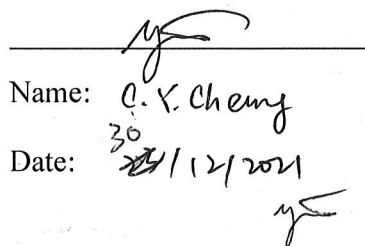 Name: C. Y. Cheung
30
Date: /12/2021